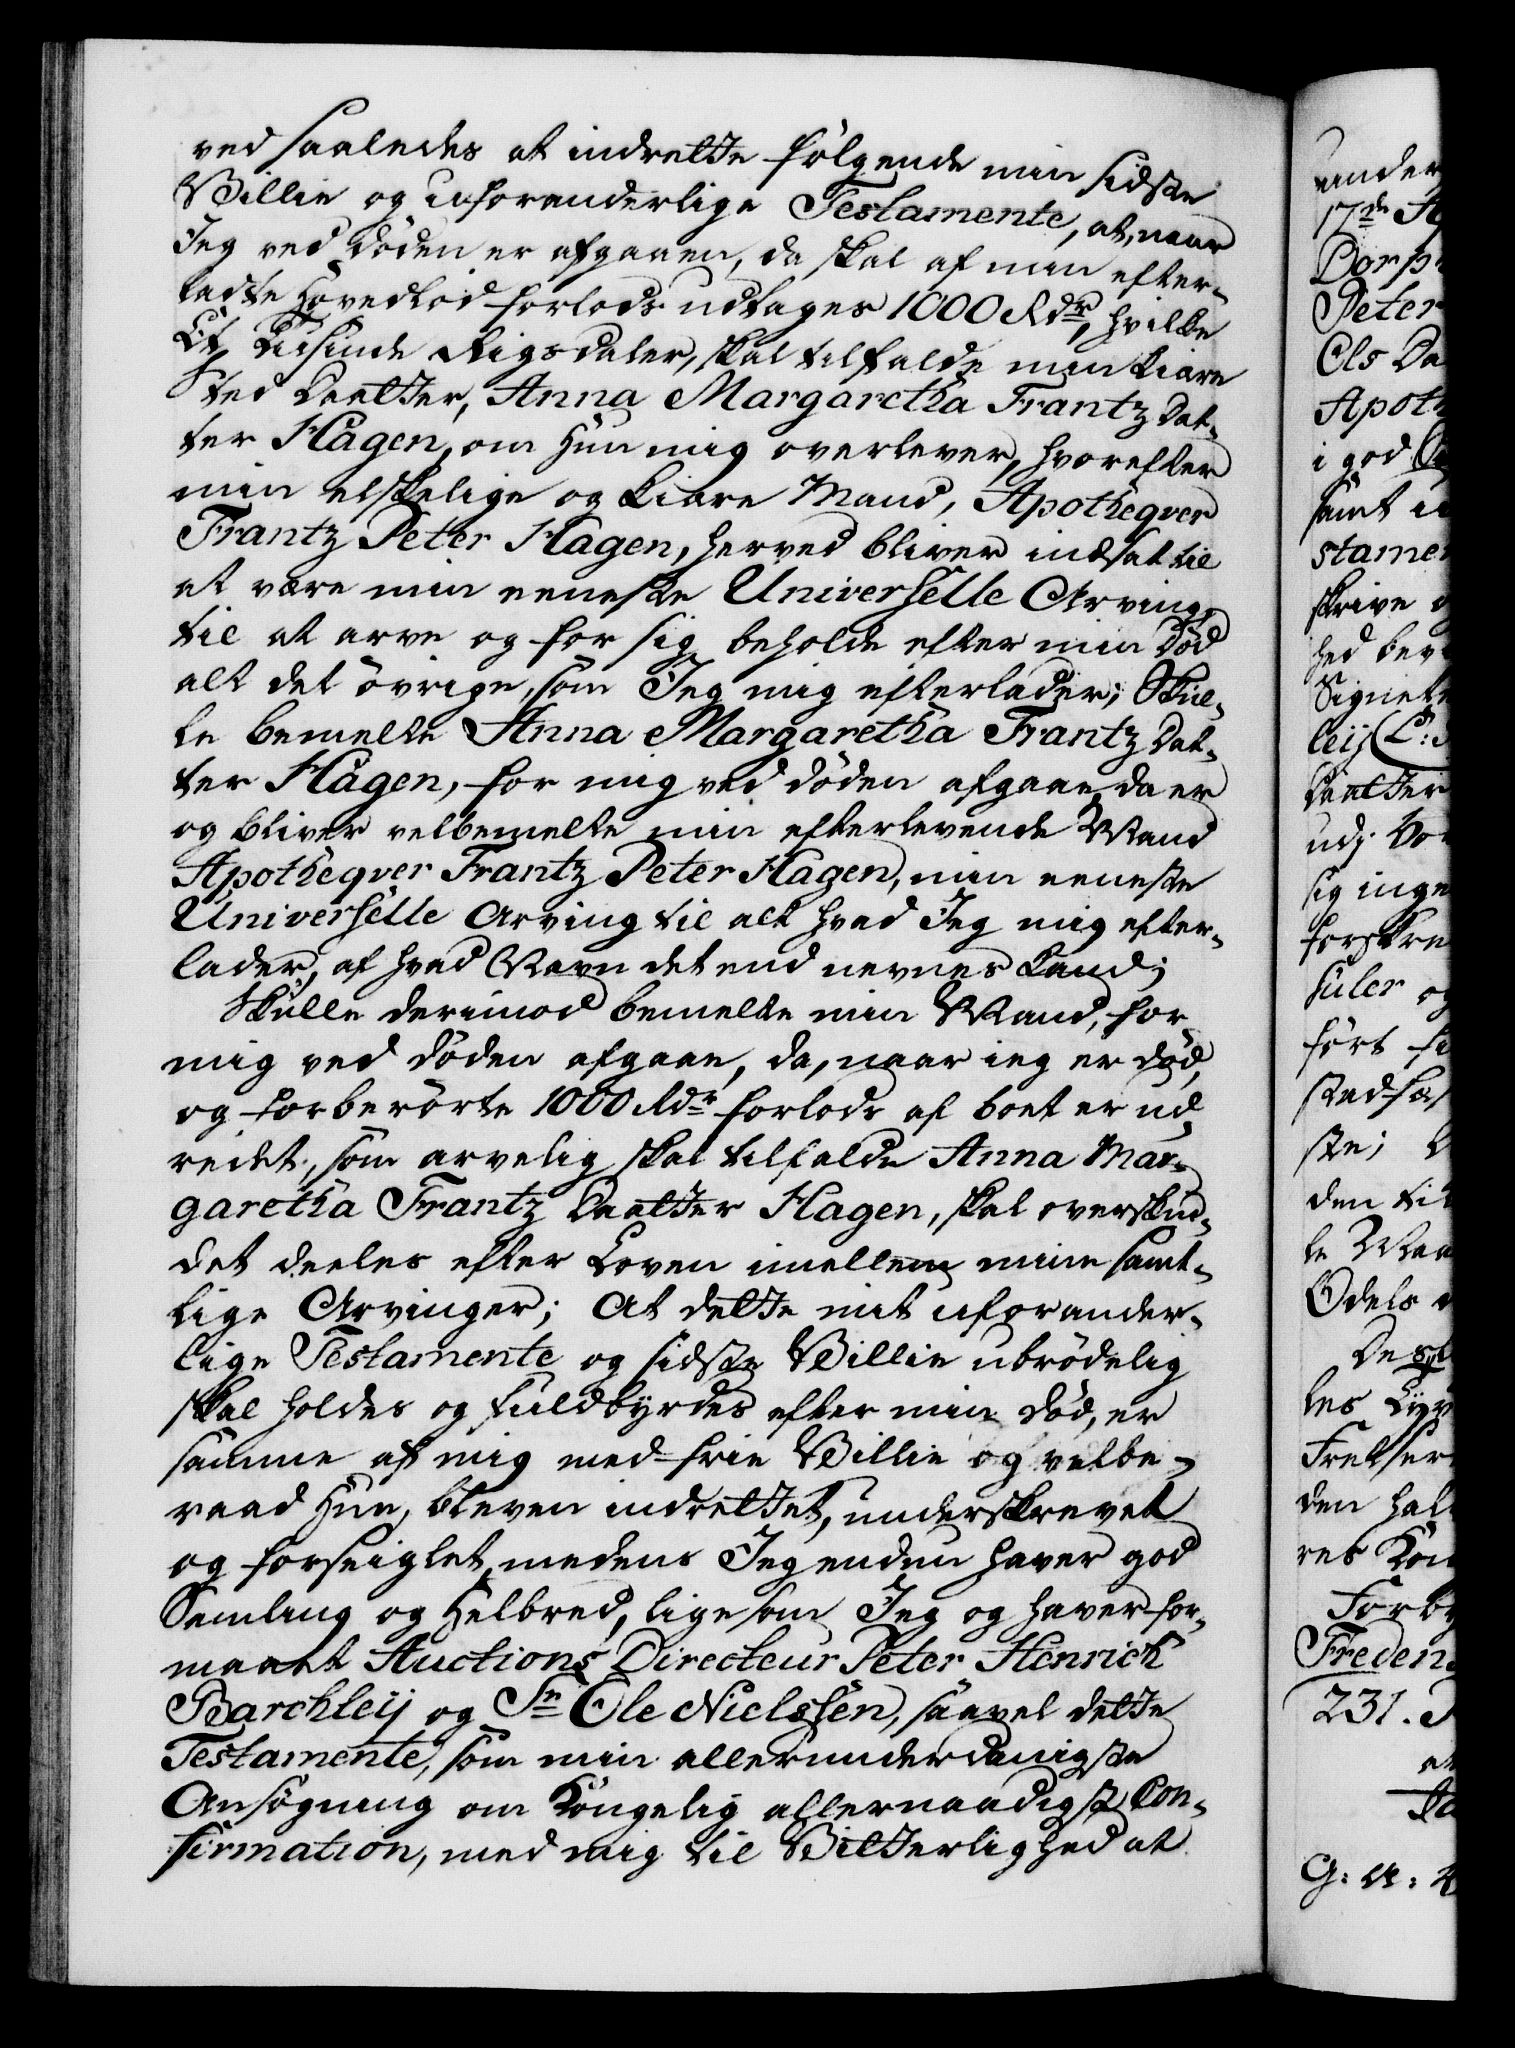 ved saaledes at indrette følgende min sidste
Villie og uforanderlige Testamente, at, naar
Jeg ved døden er afgaaen, da skal af min efter-
ladte Hovedlod forlods udtages 1000 Rdr, hvilke
Et Tusinde Rigsdaler, skal tilfalde min kiære
Sted Daatter, Anna Margaretha Frantz Dat-
ter Hagen, om Hun mig overlever, hvorefter
min elskelige og kiære Mand, Apotheqver
Frantz Peter Hagen, herved bliver indsat til
at være min eeneste Universelle Arving,
til at arve og for sig beholde efter min Død
alt det øvrige, som Jeg mig efterlader; Skul-
le bemelte Anna Margaretha Frantz Dat-
ter Hagen, for mig ved døden afgaae, da er
og bliver velbemelte min efterlevende Mand
Apotheqver Frantz Peter Hagen, min eeneste
Universelle Arving til alt hvad Jeg mig efter-
lader, af hvad Navn det end nevnes kand;
Skulle derimod bemelte min Mand, for
mig ved døden afgaae, da, naar ieg er død,
og forberørte 1000 Rdr forlods af boet er ud-
redet, som arvelig skal tilfalde Anna Mar-
garetha Frantz Daatter Hagen, skal overskud-
det deeles efter Loven imellem mine samt-
lige Arvinger; At dette mit uforander-
lige Testamente og sidste Villie ubrødelig
skal holdes og fuldbyrdes efter min død, er
samme af mig med frie Villie og velbe-
raad Hue, bleven indrettet, underskrevet
og forseiglet, medens Jeg endnu haver god
Samling og Helbred, ligesom Jeg og haver for-
maaet Auctions Directeur Peter Henrich
Barchleij og Sr Ole Nielssen, saavel dette
Testamente, som min allerunderdanigste
Ansøgning om Kongelig allernaadigst Con-
firmation, med mig til Vitterlighed at